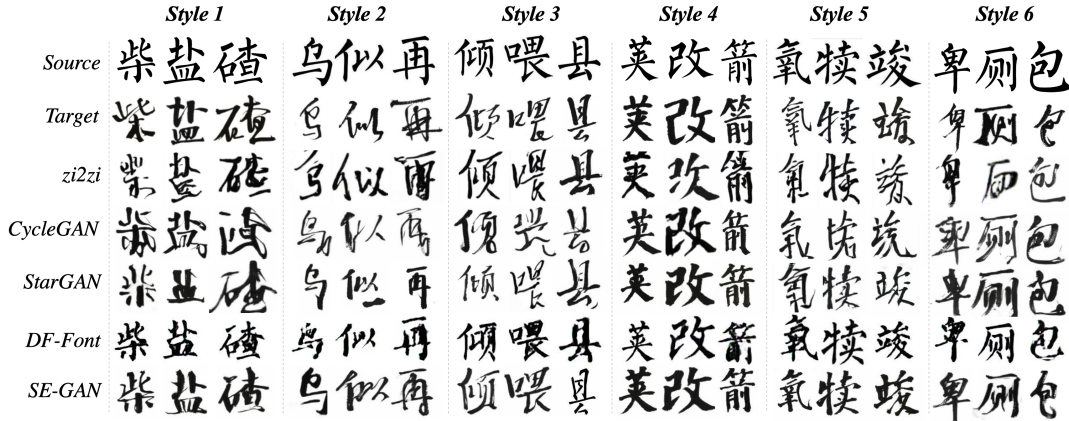 Style 1 Style 2 Style 3 Style 4 Style 5 Style 6
Source 柴盐碴 乌似再 倾喂县 英改箭 氧犊竣 卑厕包
Target 柴盐碴 乌似再 倾喂县 英改箭 氧犊竣 卑厕包
zi2zi 盐碴 乌似再 倾喂县 英改箭 氧犊竣 卑厕包
CycleGAN 盐 乌似再 倾 县 英改箭 氧 卑厕包
StarGAN 柴盐碴 乌似再 倾喂县 英改箭 氧犊竣 卑厕包
DF-Font 柴盐碴 乌似再 倾喂县 英改箭 氧犊竣 卑厕包
SE-GAN 柴盐碴 乌似再 倾喂县 英改箭 氧犊竣 卑厕包